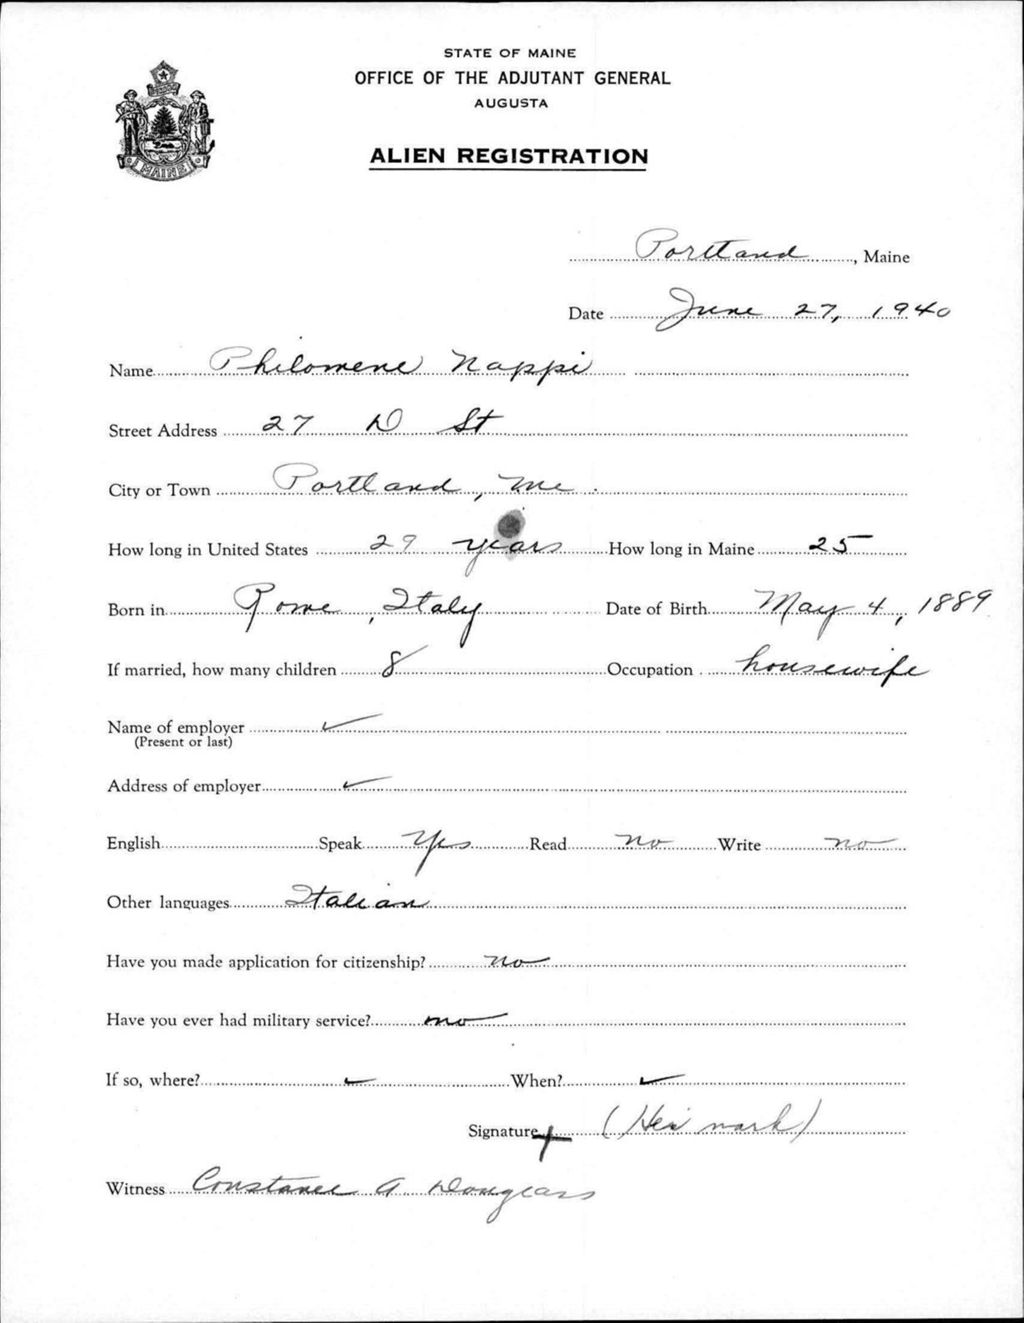 STATE OF MAINE
OFFICE OF THE ADJUTANT GENERAL
AUGUSTA
ALIEN REGISTRATION
MAINE
Portland, Maine
Date June 27, 1940
Name Philomene Nappi
Street Address 27 D St
City or Town Portland, Me.
How long in United States 29 years How long in Maine 25
Born in Rome, Italy Date of Birth May 4, 1889
If married, how many children 8 Occupation housewife
Name of employer ✓
(Present or last)
Address of employer ✓
English Speak Yes Read no Write no
Other languages Italian
Have you made application for citizenship? no
Have you ever had military service? no
If so, where? ✓ When? ✓
Signature + (Her mark)
Witness Constance A Douglass